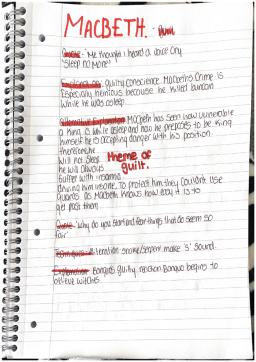 MACBETH.
Quote - 'Me thought i heard a voice cry
'Sleep no More'
Explanation. guilty conscience. MacBeths crime is
Especially heinous because he killed Duncan
While he was asleep
Alternative Explanation MacBeth has seen how vunerable
a king is while asleep and now he preposes to be king
himself he is accepting danger with his position
therefore he
will not sleep. theme of
he will always guilt.
suffer with insomnia
driving him insane. To protect him they couldnt use
guards as Macbeth knows how easy it is to
get past them
Quote - 'Why do you start and fear things that do seem so
fair'
alliteration snake/serpent make 's' sound.
Explanation Banquo begins to
believe witches